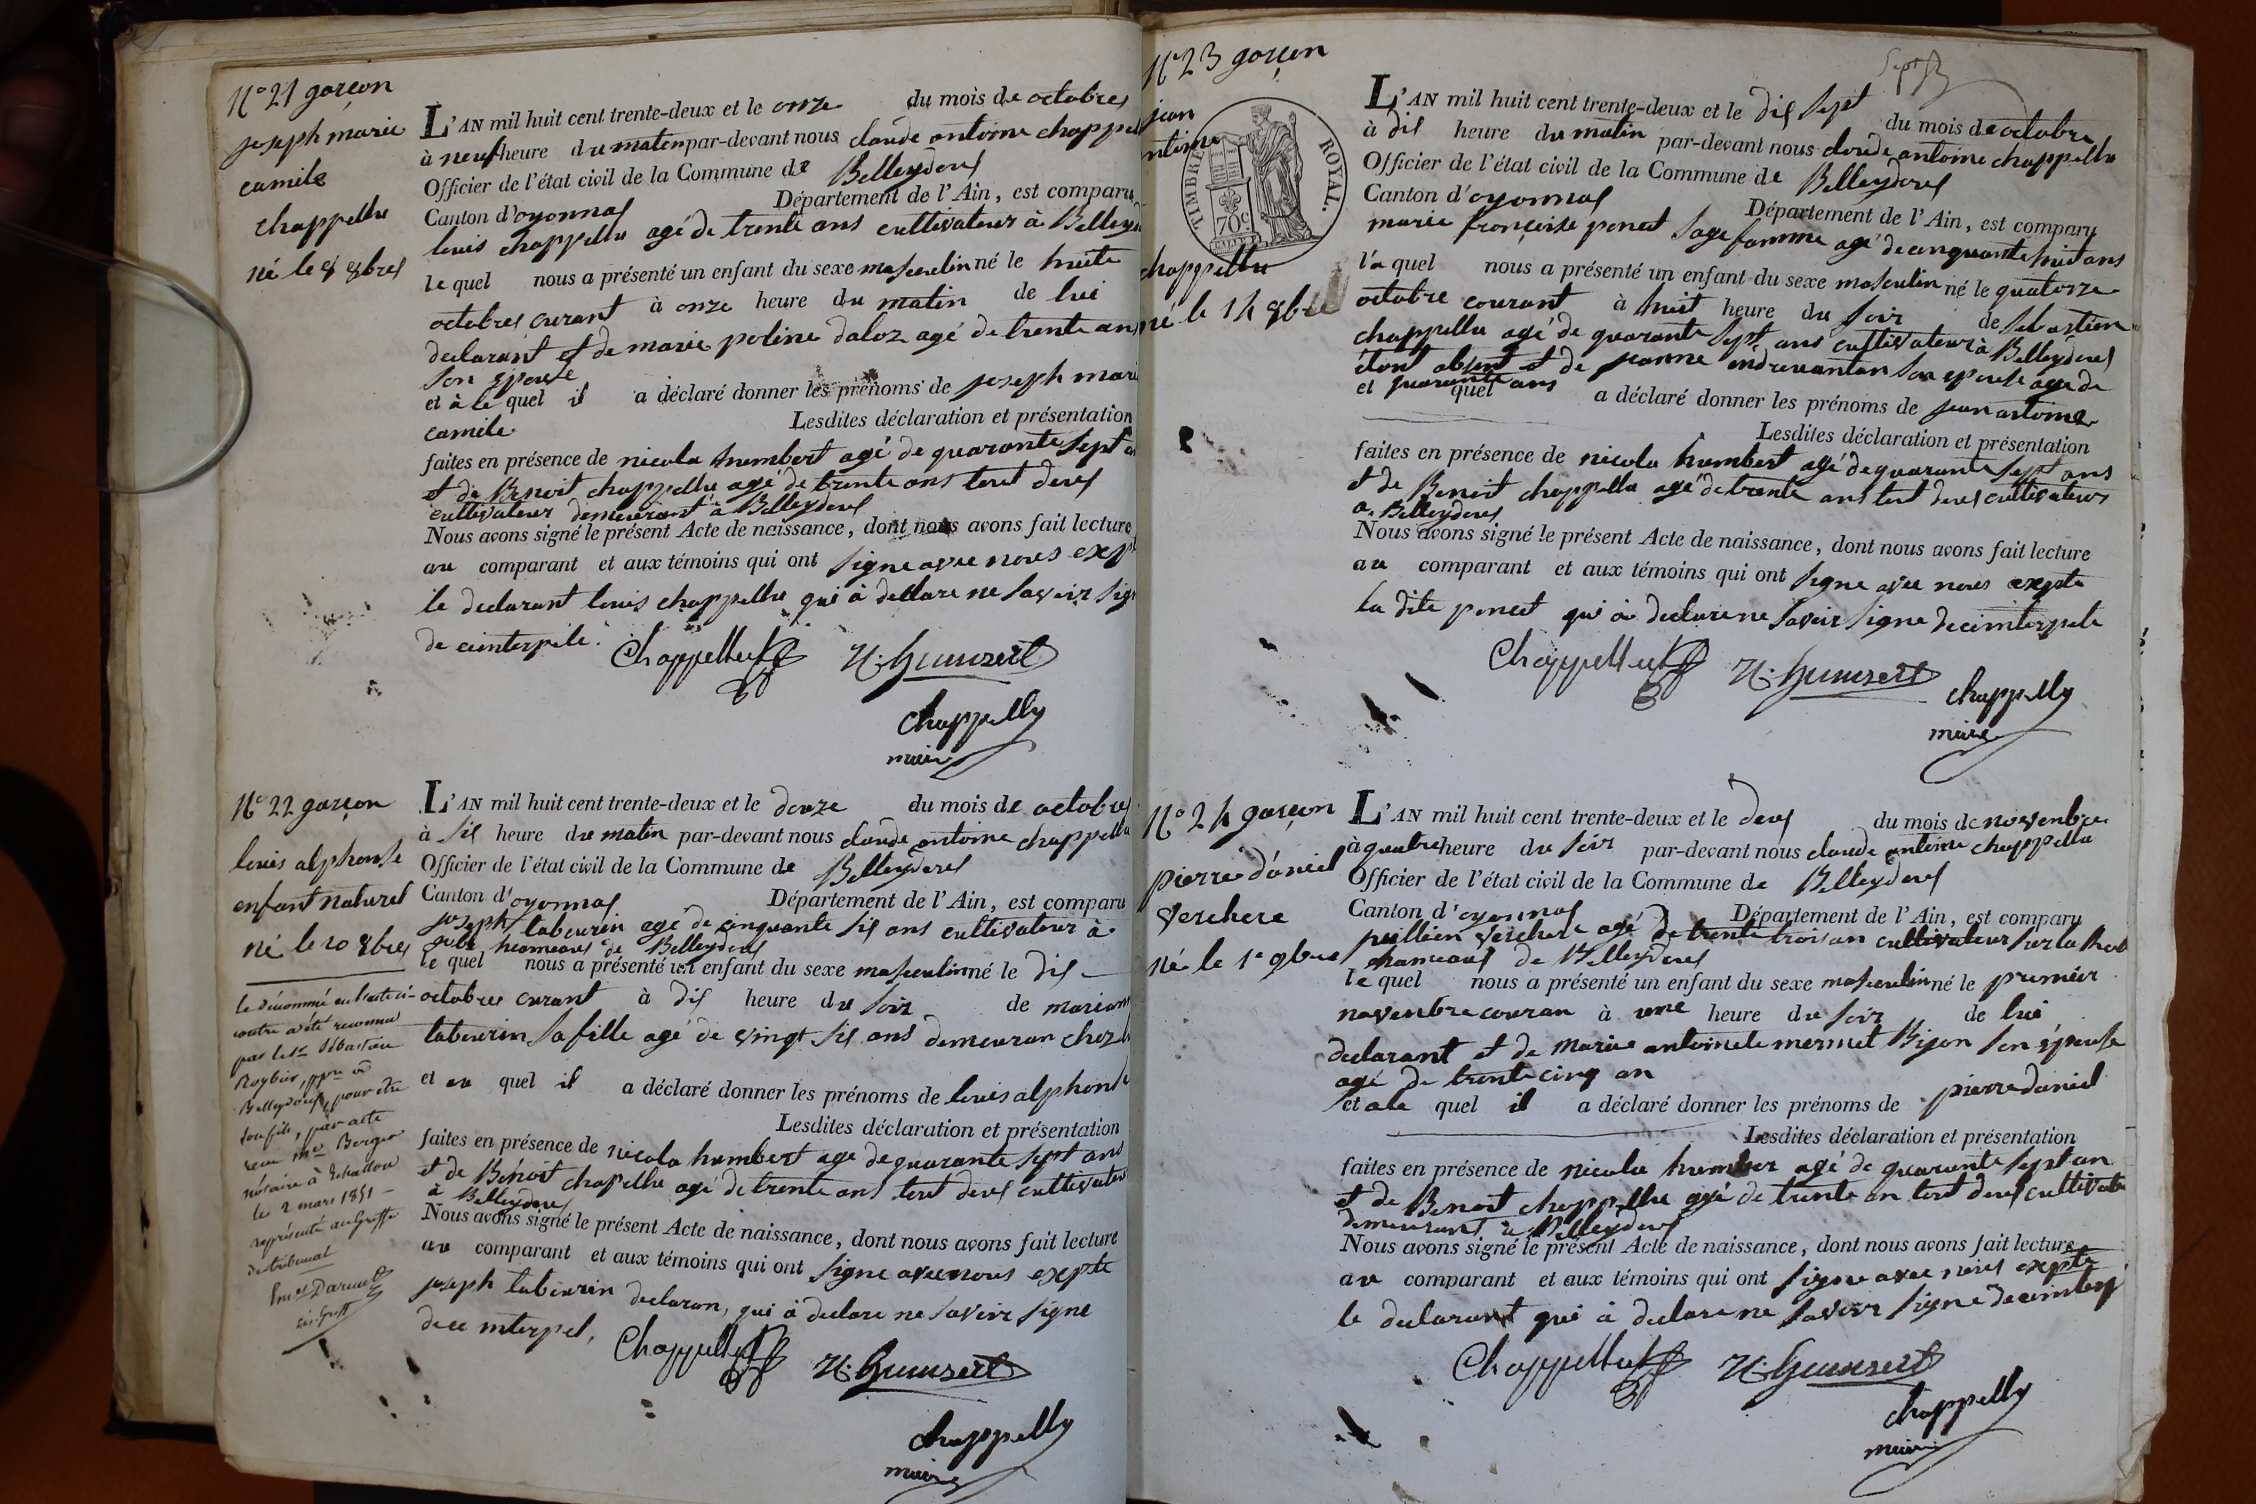 N° 21 garçon
joseph marie
camile
chappellu
né le 8 8bres
L'AN mil huit cent trente-deux et le onze du mois de octobres
à neuf heure du maten par-devant nous claude antoine chappel
Officier de l'état civil de la Commune de Belleydoux
Canton d'oyonnax Département de l'Ain, est comparu
louis chappellu agé de trente ans cultivateur à Belleyd
le quel nous a présenté un enfant du sexe masculin né le huite
octobres curant à onze heure du matin de lui
declarant et de marie poline daloz agé de trente an
son épouse
et à le quel il a déclaré donner les prénoms de joseph mari
camile Lesdites déclaration et présentation
faites en présence de nicola humbert agé de quarante sept
et de Benoit chappellu agé de trente ans tout deux
cultivateur demeurant à Belleydoux
Nous avons signé le présent Acte de naissance, dont nous avons fait lecture
au comparant et aux témoins qui ont signe avec nous exp
le declarant louis chappellu qui à dellare ne savoir sig
de ceinterpile.
Chappellu N. Humbert
Chappelly
maire
N° 22 garçon
louis alphonse
enfant naturel
né le 10 8bres
le dénommé en l'acte ci-
contre a été reconnu
par le sr Sébastien
Roybier, ppre à
Belleydoux, pour être
son fils, par acte
reçu Me Berger
notaire à Echallon
le 2 mars 1851
représenté au Greffe
du tribunal
L'AN mil huit cent trente-deux et le douze du mois de octobres
à six heure du matin par-devant nous claude antoine chappellu
Officier de l'état civil de la Commune de Belleydoux
Canton d'oyonnax Département de l'Ain, est comparu
joseph tabourin agé de cinquante six ans cultivateur à
hameaux de Belleydoux
le quel nous a présenté un enfant du sexe masculin né le dix
octobres curant à dix heure du soir de mariann
tabourin sa fille agé de vingt six ans demeuran chez l
et au quel il a déclaré donner les prénoms de louis alphonse
Lesdites déclaration et présentation
faites en présence de nicola humbert age de quarante sept ans
et de Benoit chapellu agé de trente ans tout deux cultivateu
à Belleydoux
Nous avons signé le présent Acte de naissance, dont nous avons fait lecture
au comparant et aux témoins qui ont signe avec nous exepte
joseph tabourin declaran, qui à declare ne savoir signe
de ce interpel,
Chappellu N. Humbert
Chappelly
maire
N° 23 garçon
jean
ntoine
chappellu
né le 14 8bre
TIMBRE ROYAL.
70 c
Sept
L'AN mil huit cent trente-deux et le dix sept du mois de octobre
à dix heure du matin par-devant nous claude antoine chappellu
Officier de l'état civil de la Commune de Belleydoux
Canton d'oyonnax Département de l'Ain, est comparu
marie françoise poncet sage famme agé de cinquante huit ans
la quel nous a présenté un enfant du sexe masculin né le quatorze
octobre courant à huit heure du soir de sebastien
chappellu agé de quarante sept ans cultivateur à Belleydoux
étant absent et de jeanne son epouse age de
et quarante ans quel a déclaré donner les prénoms de jean antoine
Lesdites déclaration et présentation
faites en présence de nicola humbert agé de quarante sept ans
et de Benoit chappellu agé de trente ans tout deux cultivateurs
a Belleydoux
Nous avons signé le présent Acte de naissance, dont nous avons fait lecture
au comparant et aux témoins qui ont signe avec nous exepte
la dite poncet qui à declare ne savoir signe de ceinterpele
Chappellu N. Humbert
Chappelly
maire
N° 24 garçon
pierre daniel
verchere
né le 1e 9bre
L'AN mil huit cent trente-deux et le deux du mois de novembre
à quatre heure du soir par-devant nous claude antoine chappellu
Officier de l'état civil de la Commune de Belleydoux
Canton d'oyonnax Département de l'Ain, est comparu
jullien verchere agé de trente trois an cultivateur sur la
hameaux de Belleydoux
le quel nous a présenté un enfant du sexe masculin né le premier
novembre couran à une heure du soir de lui
declarant et de marie antoinete mermet Bijon son épouse
agé de trente cinq an
et a le quel il a déclaré donner les prénoms de pierre daniel
Lesdites déclaration et présentation
faites en présence de nicola humber agé de quarante sept an
et de Benoit chappellu agé de trente an tout deux cultivate
demeurant à Belleydoux
Nous avons signé le présent Acte de naissance, dont nous avons fait lecture
au comparant et aux témoins qui ont signe avec nous exepte
le declarant qui à declare ne savoir signe de ceinterp
Chappellu N. Humbert
Chappelly
maire